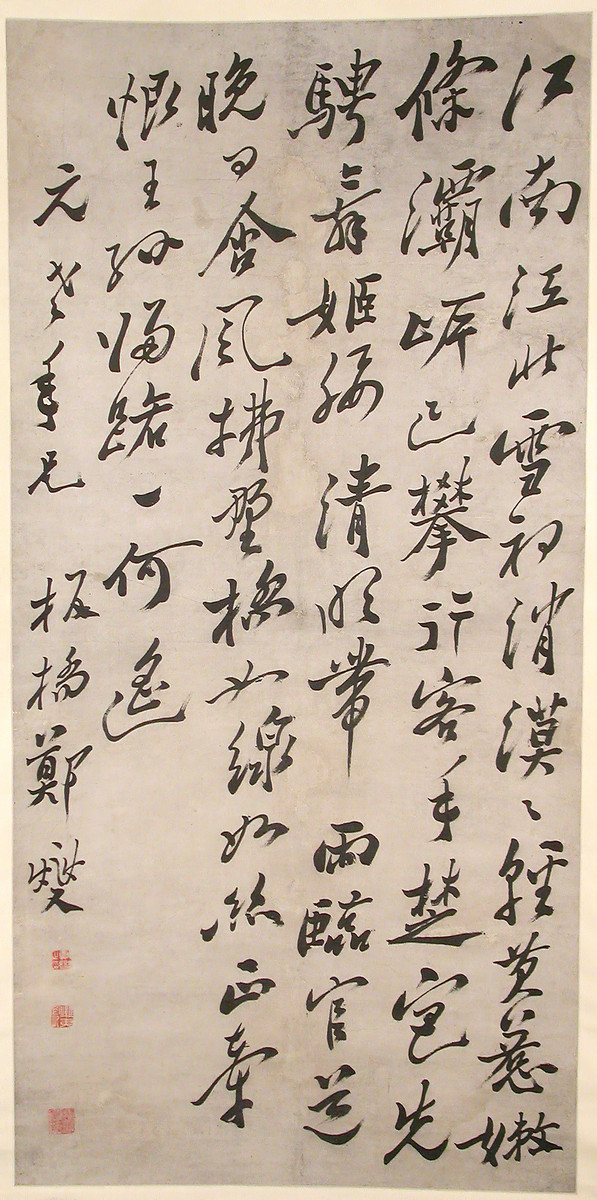 江南江北雪初消漠〻輕黄惹嫩
條灞岸已攀行客手楚宮先
騁舞姬腰清明帶雨臨官道
晚日含風拂野橋如線如絲正牽
恨王孫歸路一何遙
元老年兄 板橋鄭燮